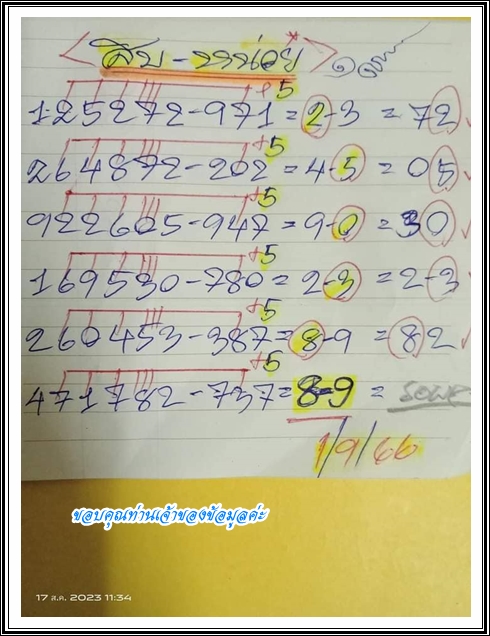 +5
125272-971=2-3 = 72
+5
264872-202=4-5 = 05
+5
922605-947=9-0 = 30
+5
169530-780=2-3 = 2-3
+5
260453-387=8-9 = 82
+5
471782-737=8-9 =
1/9/66
ขอบคุณท่านเจ้าของข้อมูลค่ะ
17 ส.ค. 2023 11:34